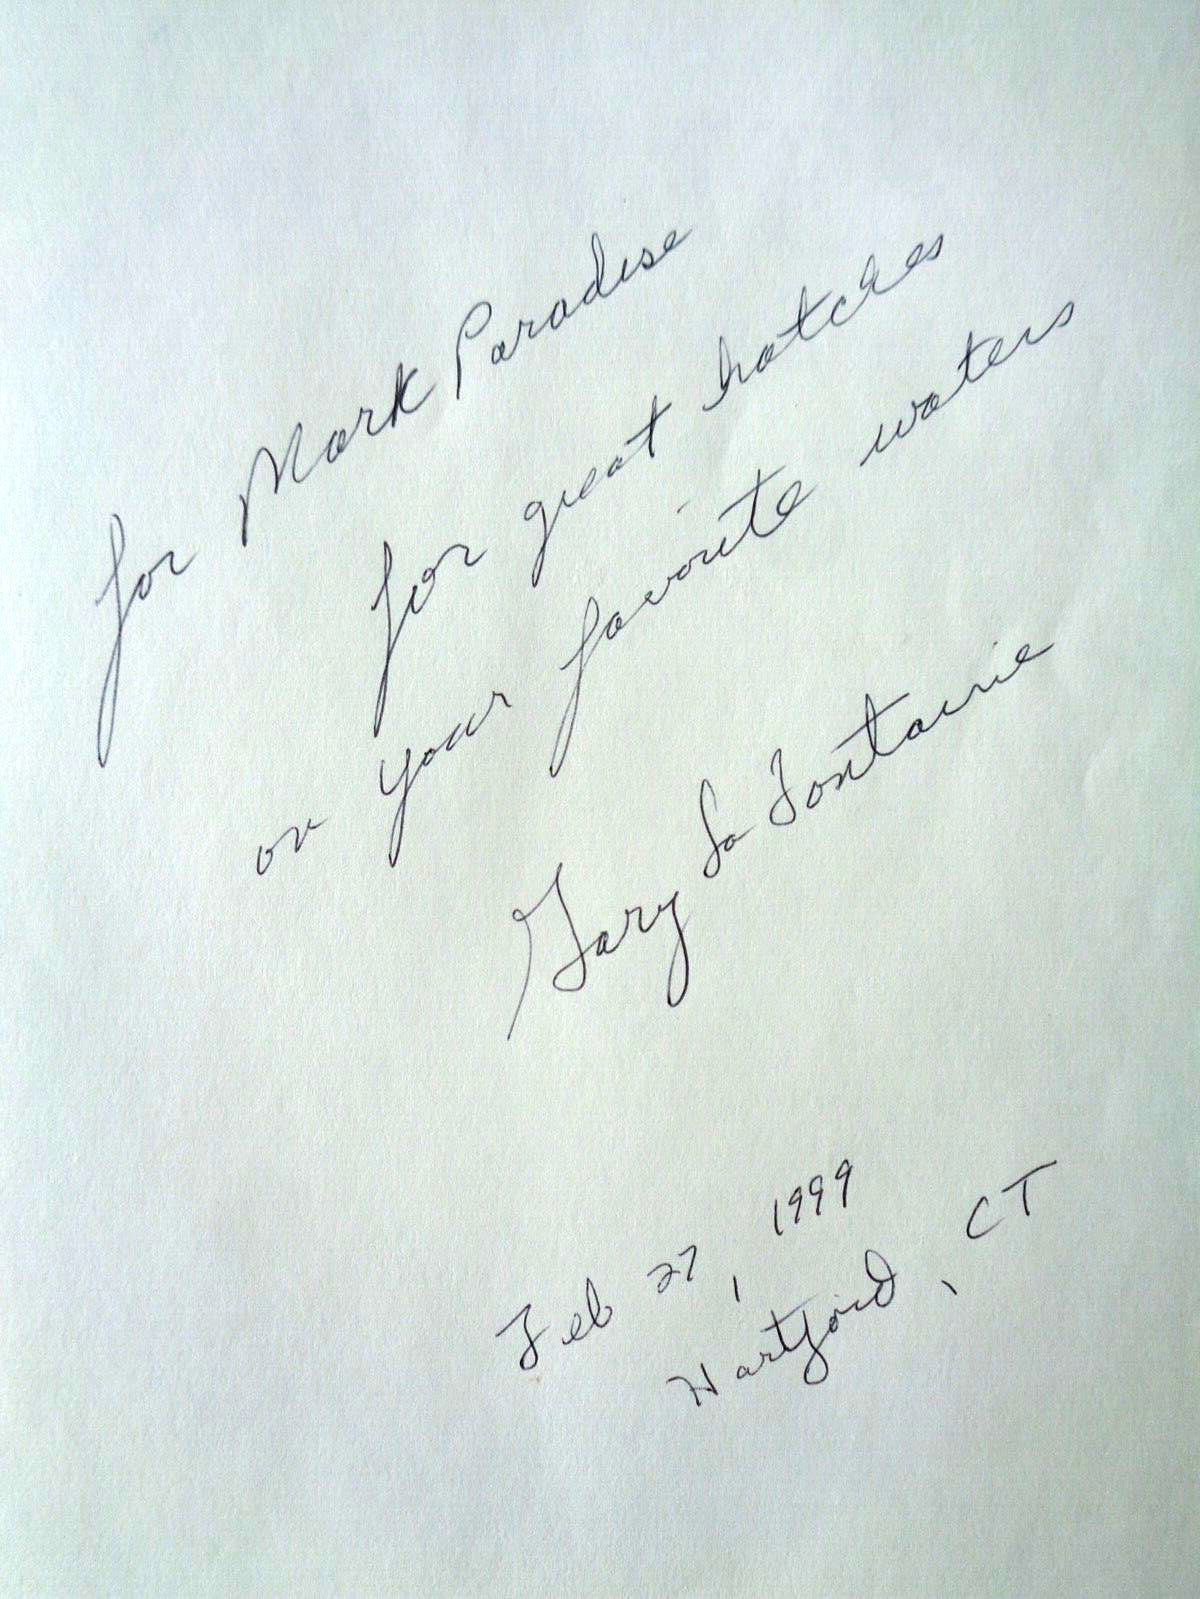 for Mark Paradise
for great hatches
on your favorite waters
Gary LaFontaine
Feb 27, 1999
Hartford, CT